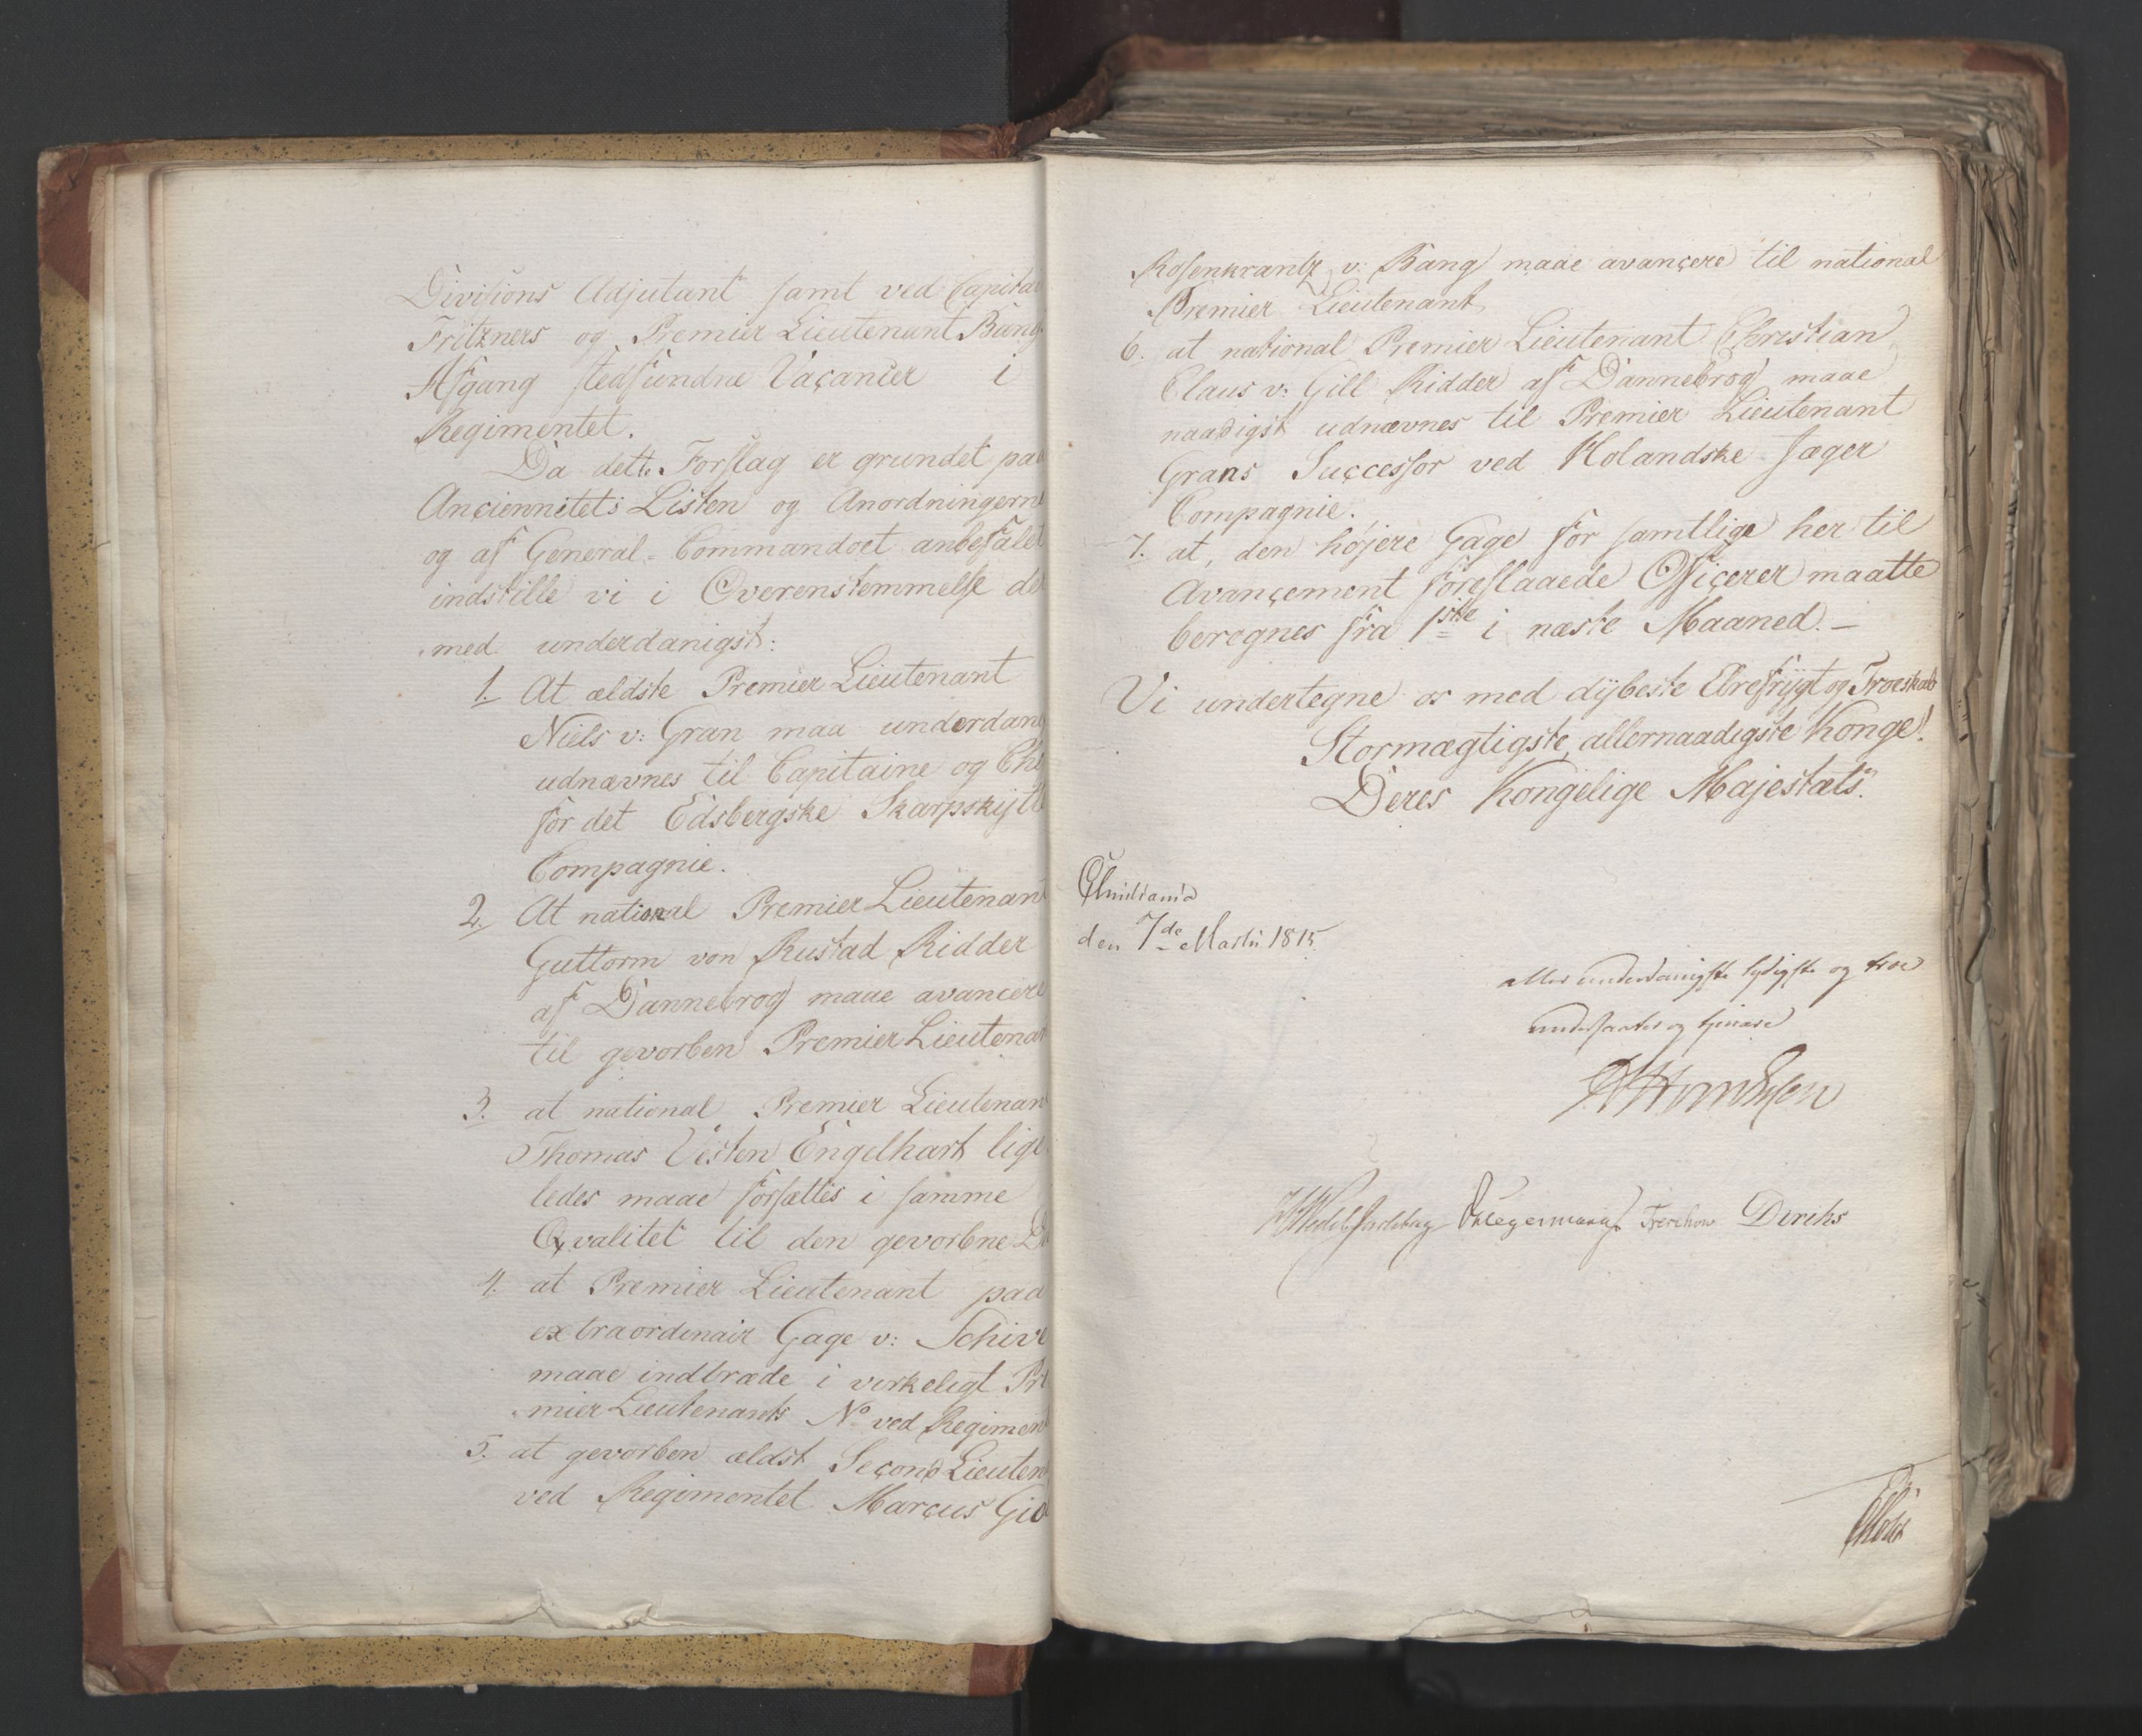 Divisions Adjutant samt ved Capita
Fritzners og Premier Lieutenant Bang
Afgang stedfundne Vacancer i
Regimentet.
Da dette Forslag er grundet paa
Anciennitets Listen og Anordningerne
og af General-Commandoet anbefalet
indstille vi i Overenstemmelse de
med underdanigst:
1. At ældste Premier Lieutenant
Niels v: Gran maa underdan
udnævnes til Capitaine og Che
for det Edsbergske Skarpskytt
Compagnie.
2. At national Premier Lieutenant
Guttorm von Rustad Ridder
af Dannebrog maae avancere
til gevorben Premier Lieutenan
3. at national Premier Lieutenan
Thomas Vesten Engelhart lige
ledes maae forsættes i samme
Qvalitet til den gevorbne
4. at Premier Lieutenant paa
extraordinair Gage v: Schive
maae indtræde i virkeligt Pre
mier Lieutenants No ved Regiment
5. at gevorben ældst Second Lieuten
ved Regimentet Marcus Gio
Rosenkrantz v: Bang maae avancere til national
Premier Lieutenant
6. at national Premier Lieutenant Christian
Claus v: Gill Ridder af Dannebrog maae
naadigst udnævnes til Premier Lieutenant
Grans Successor ved Holandske Jæger
Compagnie.
7. at, den højere Gage for samtlige her til
Avancement foreslaaede Officerer maatte
beregnes fra 1ste i næste Maaned.-
Vi undertegne os med dybeste Ærefrygt og Troeskab
Stormægtigste, allernaadigste Konge!
Deres Kongelige Majestæts.
Christiania
den 7de Martii 1815
aller underdanigste lydigste og troe
undersaatter og tienere
Thomsen
HWedel Jarlsberg Kregerman Treschow Diriks